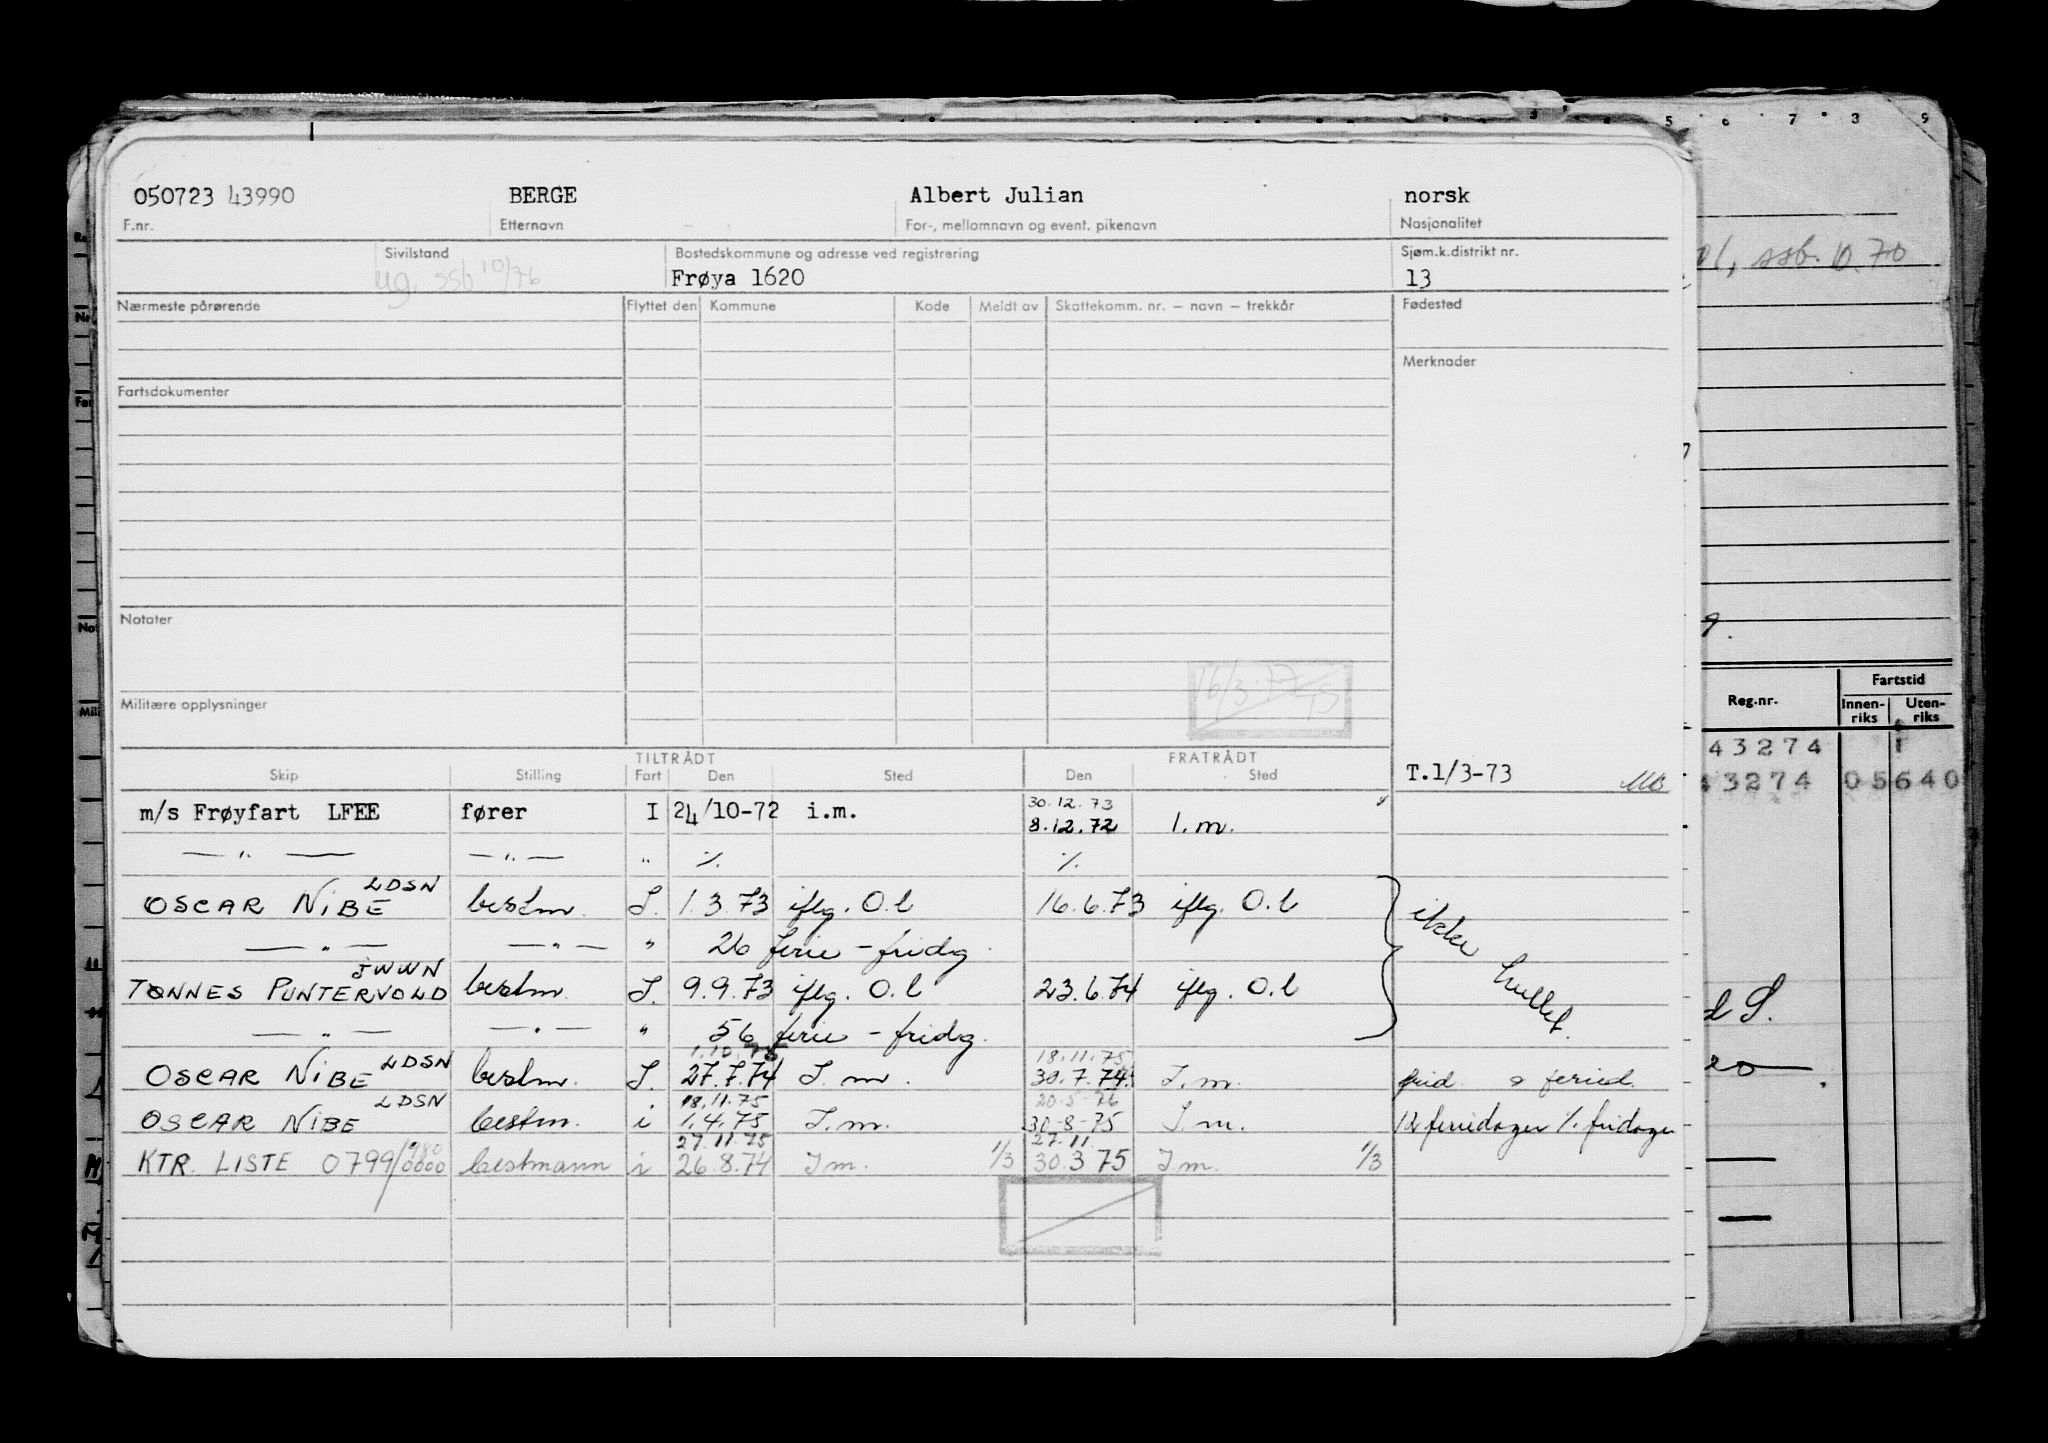 050723 43990 BERGE Albert Julian norsk
F.nr. Etternavn For-, mellomnavn og event. pikenavn Nasjonalitet
Sivilstand Bostedskommune og adresse ved registrering Sjøm.k.distrikt nr.
ug. ssb 10/76 Frøya 1620 13
Nærmeste pårørende Flyttet den Kommune Kode Meldt av Skattekomm. nr. – navn – trekkår Fødested
Merknader
Fartsdokumenter
Notater
16/3-77
Militære opplysninger
TILTRÅDT FRATRÅDT
Skip Stilling Fart Den Sted Den Sted T.1/3-73
30.12.73
m/s Frøyfart LFEE fører I 24/10-72 i.m. 8.12.72 I.m.
— " — — " — " % %
LDSN
OSCAR NIBE bestm. I. 1.3.73 iflg. O.l 16.6.73 iflg. O.l ikke
— " — — " — " 26 ferie - fridg.
JWWN
TØNNES PUNTERVOLD bestm. I. 9.9.73 iflg. O.l 23.6.74 iflg. O.l hullet.
— " — — " — " 56 ferie - fridg.
1.10.75 18.11.75
OSCAR NIBE LDSN bestm. I. 27.7.74 I.m. 30.7.74 I.m. frid. o feried.
18.11.75 20-5-76
OSCAR NIBE LDSN bestm. i 1.4.75 I.m. 30-8-75 I.m. feriedager %. fridager
27.11.75 27.11.
KTR. LISTE 0799/0000 980 bestmann i 26.8.74 I m. 1/3 30.3 75 I m. 1/3
5 6 7 8 9
ssb. 10.70
9.
Reg.nr. Fartstid
Innen-riks Uten-riks
43274 1
43274 05640
d S.
20